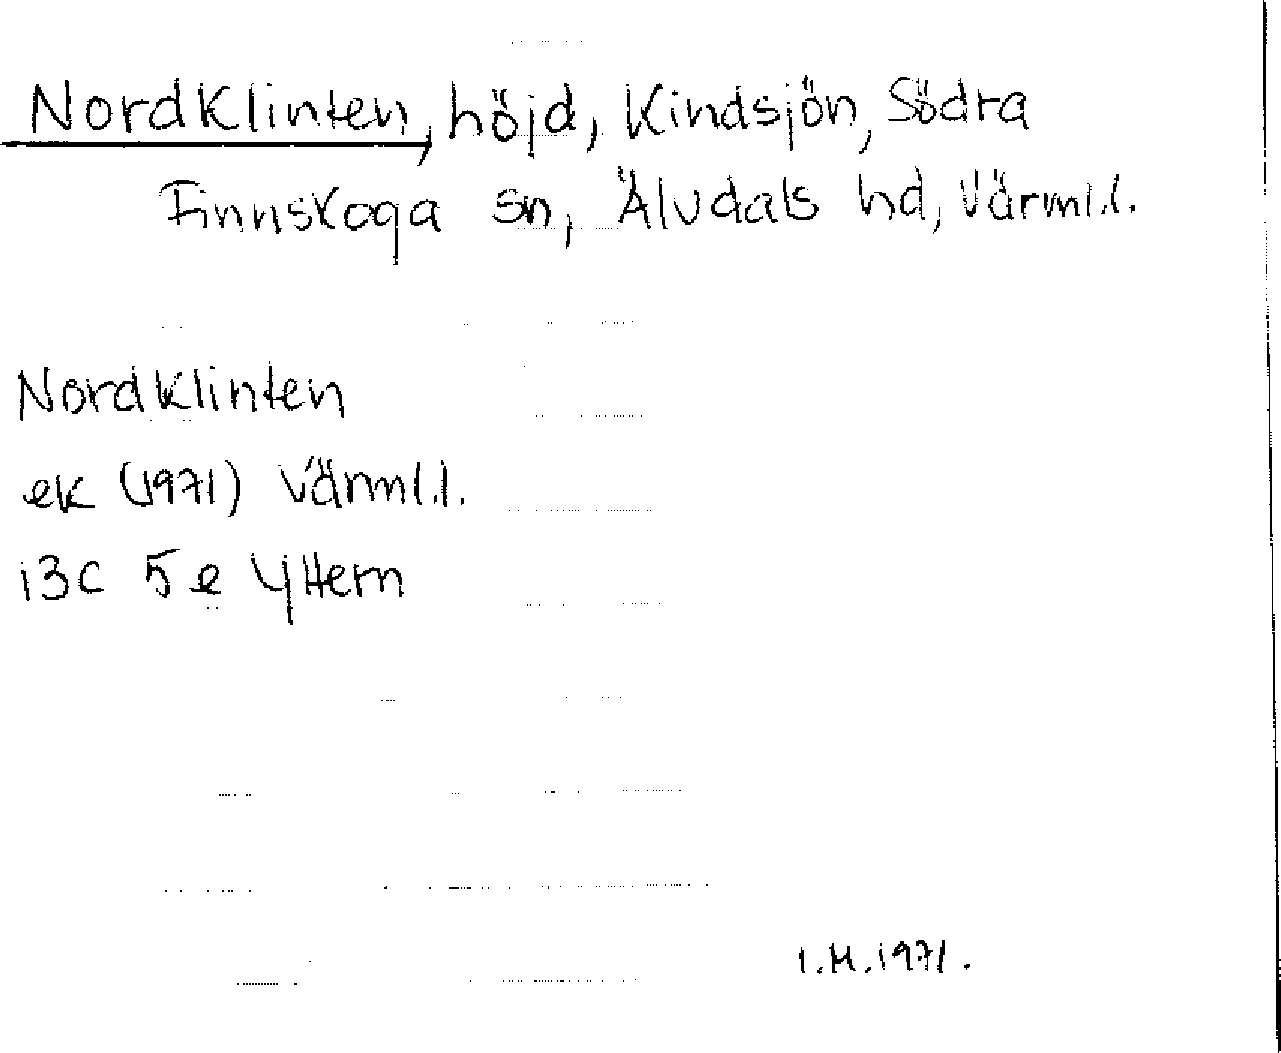 Nordklinten, höjd, Kindsjön, Södra
Finnskoga sn, Älvdals hd, Värml.l.
Nordklinten
ek (1971) Värml.l.
13C 5e Yttern
I.M.1971.